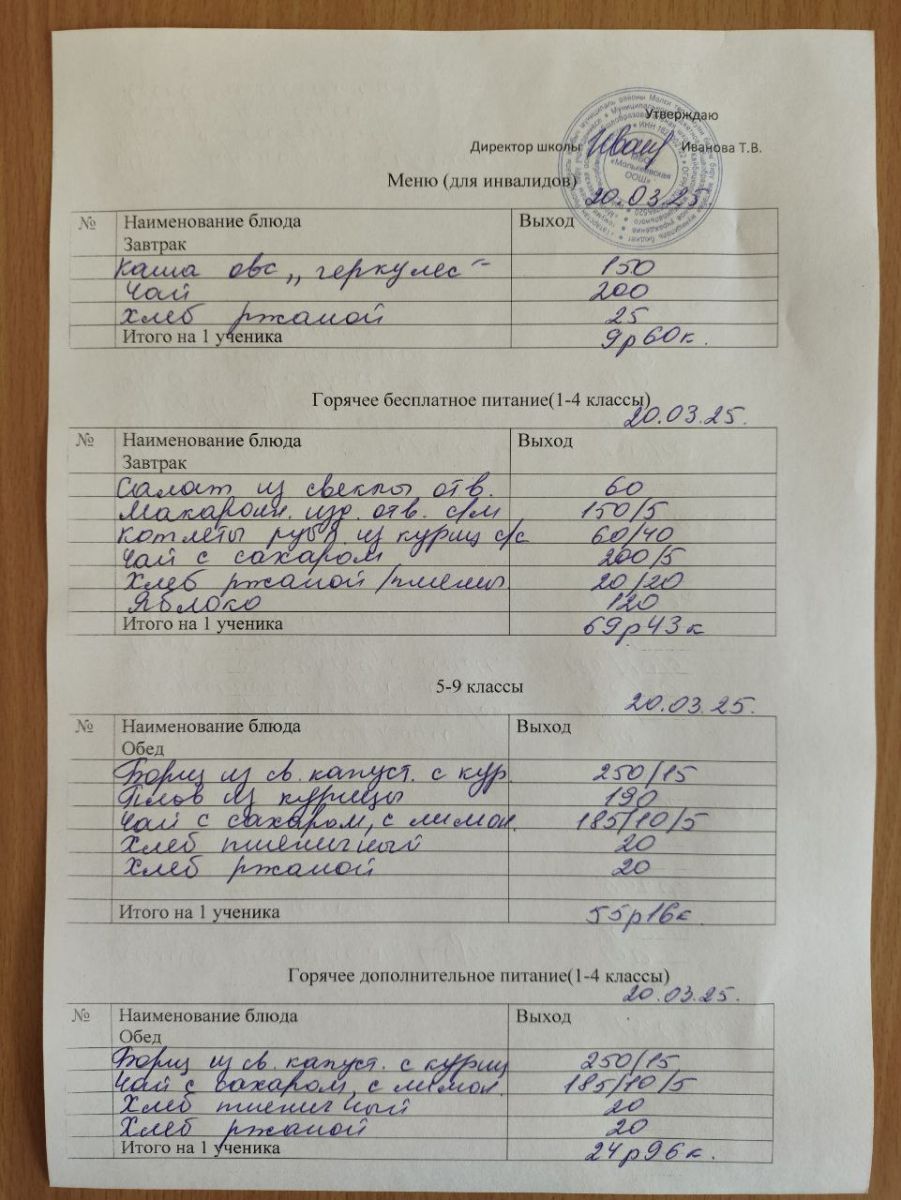 Утверждаю
Директор школы Иванова Т.В.
«Малькеевская
ООШ»
Меню (для инвалидов)
20.03.25
№ Наименование блюда Выход
Завтрак
Каша овс „геркулес“ 150
Чай 200
Хлеб ржаной 25
Итого на 1 ученика 9р60к.
Горячее бесплатное питание(1-4 классы)
20.03.25.
№ Наименование блюда Выход
Завтрак
Салат из свеклы отв. 60
Макарон. изд. отв. с/м 150/5
Котлеты рубл. из куриц с/с 60/40
Чай с сахаром 200/5
Хлеб ржаной/пшены. 20/20
Яблоко 120
Итого на 1 ученика 69р43к
5-9 классы
20.03.25.
№ Наименование блюда Выход
Обед
Борщ из св. капуст. с кур. 250/15
Плов из курицы 190
Чай с сахаром, с лимон. 185/10/5
Хлеб пшеничный 20
Хлеб ржаной 20
Итого на 1 ученика 55р16к.
Горячее дополнительное питание(1-4 классы)
20.03.25.
№ Наименование блюда Выход
Обед
Борщ из св. капуст. с куриц 250/15
Чай с сахаром, с лимон. 185/10/5
Хлеб пшеничный 20
Хлеб ржаной 20
Итого на 1 ученика 24р96к.